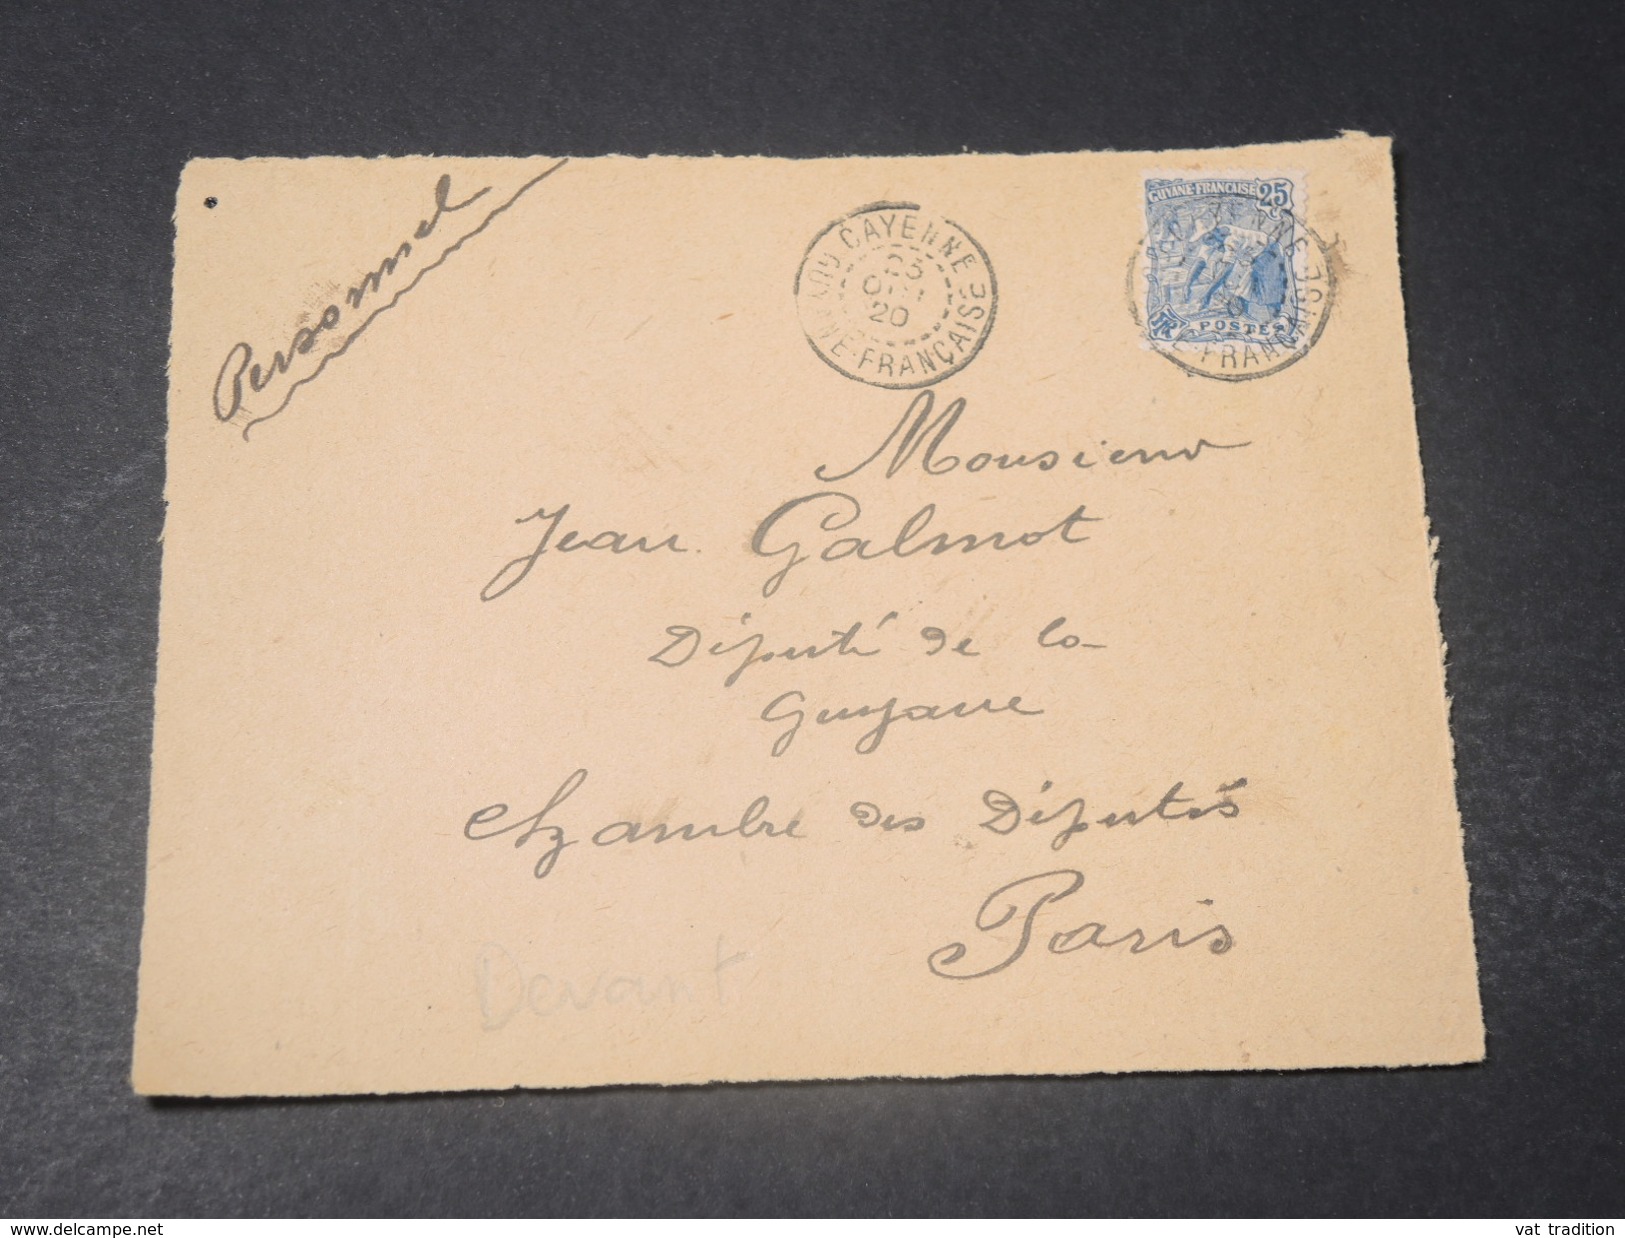 Personnel
CAYENNE
20
GUYANE-FRANÇAISE
GUYANE-FRANÇAISE 25
POSTES
Monsieur
Jean Galmot
Député de la
Guyane
Chambre des Députés
Paris
Devant
© www.delcampe.net
vat_tradition